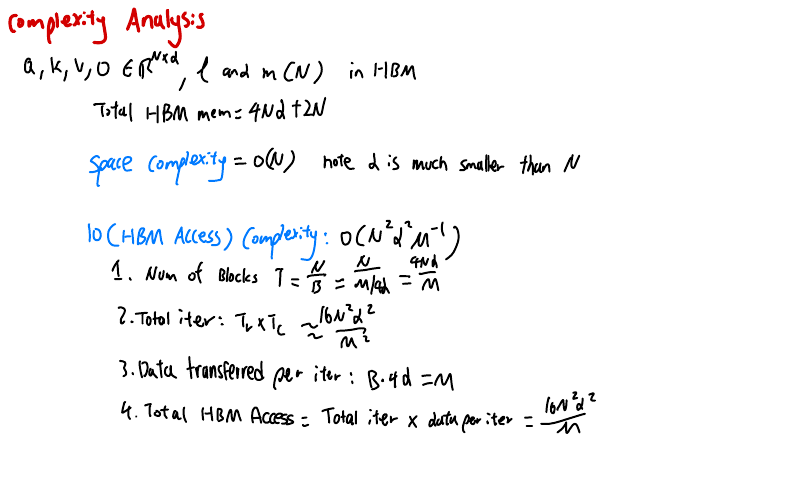 Complexity Analysis
Q, K, V, O ∈ R^{N×d}, l and m (N) in HBM
Total HBM mem = 4Nd + 2N
Space Complexity = O(N) note d is much smaller than N
IO (HBM Access) Complexity: O(N²d²M⁻¹)
1. Num of Blocks T = N/B = N/(M/4d) = 4Nd/M
2. Total iter: Tr × Tc ≈ 16N²d²/M²
3. Data transferred per iter: B·4d = M
4. Total HBM Access = Total iter × data per iter = 16N²d²/M